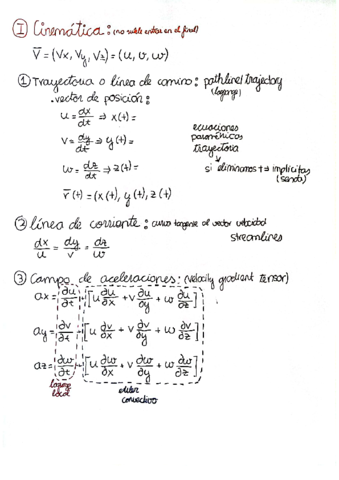 I Cinemática: (no suele entrar en el final)
V̄ = (Vx, Vy, Vz) = (u, v, w)
① Trayectoria o línea de camino: pathline/trajectory
(lagrange)
.vector de posición:
u = dx/dt ⇒ x(t) =
v = dy/dt ⇒ y(t) =
w = dz/dt ⇒ z(t) =
r̄(t) = (x(t), y(t), z(t)
ecuaciones
paramétricas
trayectoria
si eliminamos t ⇒ implícitas
(senda)
② línea de corriente: curva tangente al vector velocidad
streamlines
dx/u = dy/v = dz/w
③ Campo de aceleraciones: (velocity gradient tensor)
ax = ∂u/∂t + [u ∂u/∂x + v ∂u/∂y + w ∂u/∂z]
ay = ∂v/∂t + [u ∂v/∂x + v ∂v/∂y + w ∂v/∂z]
az = ∂w/∂t + [u ∂w/∂x + v ∂w/∂y + w ∂w/∂z]
local
euler
convectivo